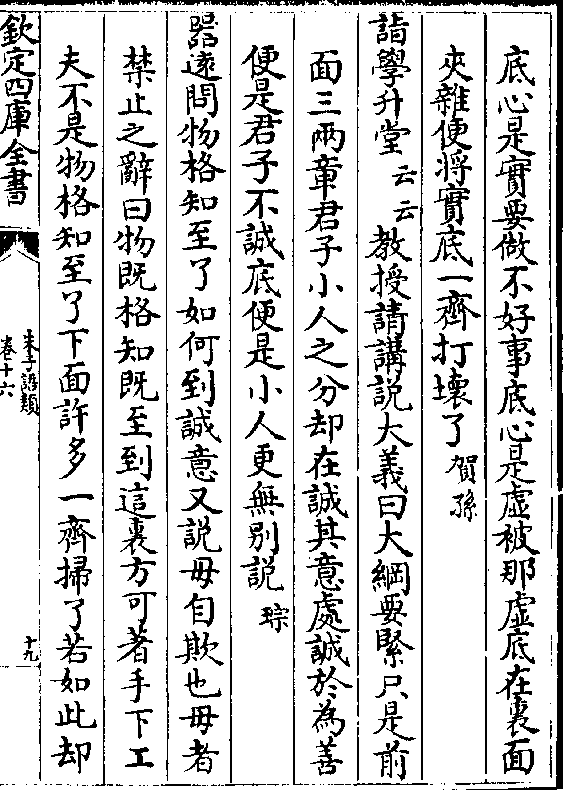 底心是實要做不好事底心是虛被那虛底在裏面
夾雜便將實底一齊打壞了賀孫
詣學升堂云云教授請講說大義曰大綱要緊只是前
面三兩章君子小人之分却在誠其意處誠於為善
便是君子不誠底便是小人更無别說琮
器遠問物格知至了如何到誠意又說毋自欺也毋者
禁止之辭曰物既格知既至到這裏方可著手下工
夫不是物格知至了下面許多一齊掃了若如此却
欽定四庫全書
朱子語類
卷十六
十九